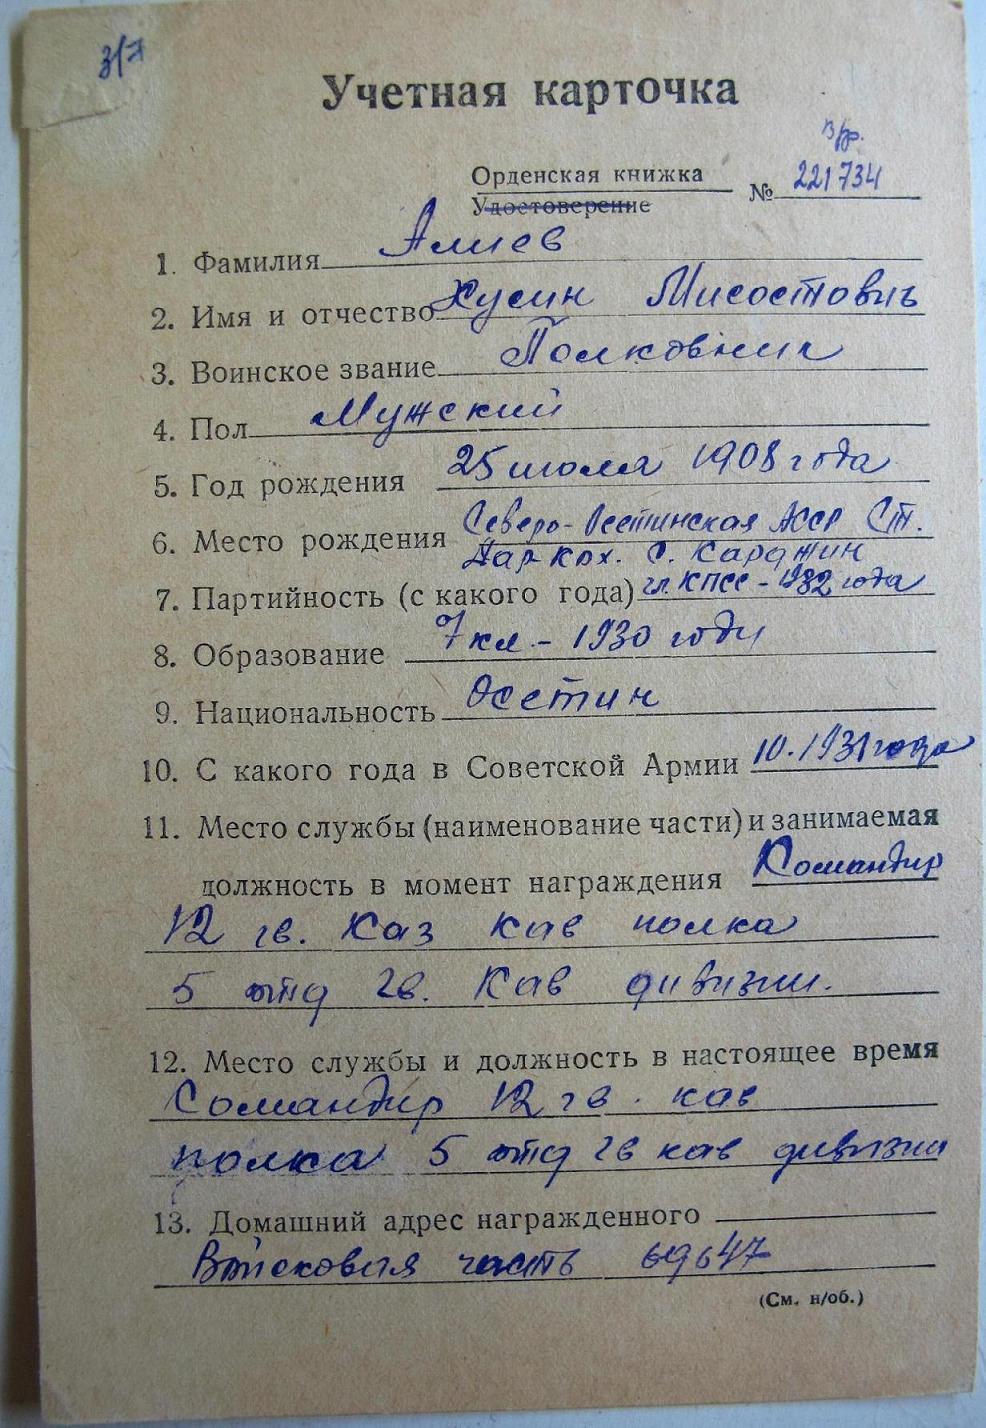 3/7
Учетная карточка
Вр.
Орденская книжка
Удостоверение № 221734
1. Фамилия Алиев
2. Имя и отчество Хусин Мисостовичь
3. Воинское звание Полковник
4. Пол Мужский
5. Год рождения 25 июля 1908 года
6. Место рождения Северо-Осетинская АССР Ст.
Дар Кох. С. Карджин
7. Партийность (с какого года) чл. КПСС - 1932 года
8. Образование 7 кл. - 1930 году
9. Национальность Осетин
10. С какого года в Советской Армии 10.1931 года
11. Место службы (наименование части) и занимаемая
должность в момент награждения Командир
12 гв. Каз Кав полка
5 отд гв. Кав дивизии.
12. Место службы и должность в настоящее время
Командир 12 гв. кав
полка 5 отд гв кав дивизии
13. Домашний адрес награжденного
Войсковая часть 69647
(См. н/об.)